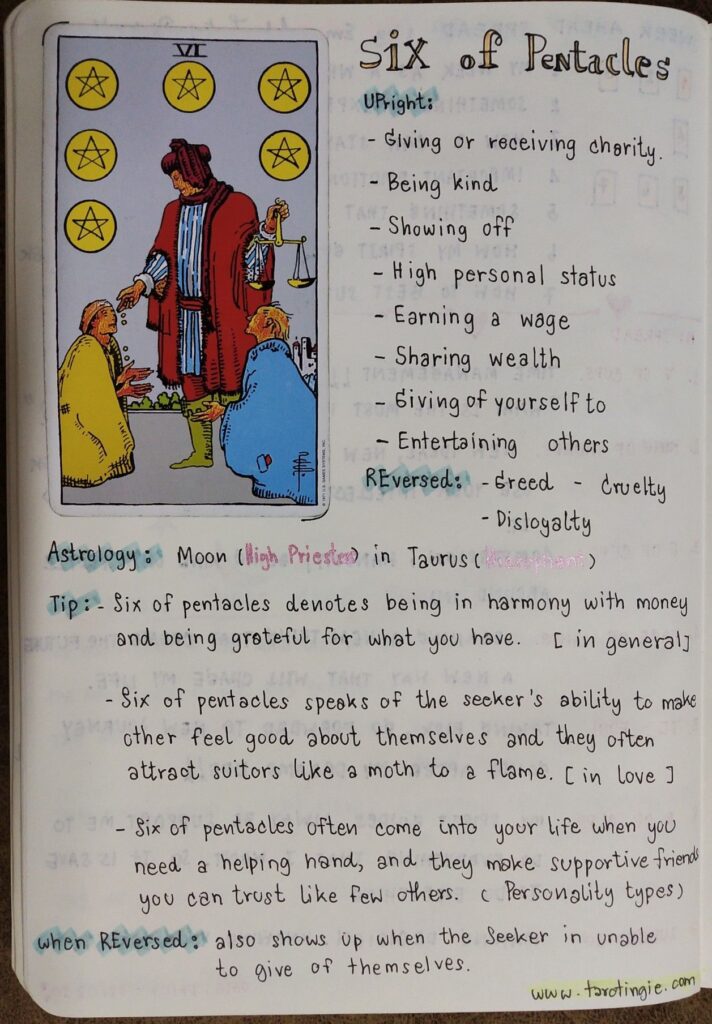 VI
Six of Pentacles
UPright:
- Giving or receiving charity.
- Being kind
- Showing off
- High personal status
- Earning a wage
- Sharing wealth
- Giving of yourself to
- Entertaining others
REversed: - Greed - Cruelty
- Disloyalty
Astrology: Moon (High Priestess) in Taurus (Hierophant)
Tip: - Six of pentacles denotes being in harmony with money
and being grateful for what you have. [in general]
- Six of pentacles speaks of the seeker's ability to make
other feel good about themselves and they often
attract suitors like a moth to a flame. [in love]
- Six of pentacles often come into your life when you
need a helping hand, and they make supportive friends
you can trust like few others. (Personality types)
when REversed: also shows up when the Seeker in unable
to give of themselves.
www.tarotingie.com